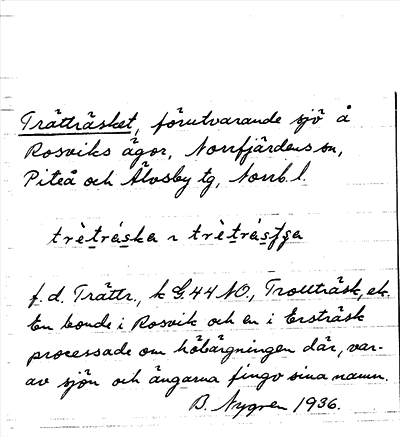 Trätträsket, förutvarande sjö å
Rosviks ägor, Norrfjärdens sn,
Piteå och Älvsby tg, Norrb. l.
trètráska ~ trètrásʃʂa
f. d. Trättr., k G.44 NO., Trollträsk, ek.
En bonde i Rosvik och en i Ersträsk
processade om höbärgningen där, var-
av sjön och ängarna fingo sina namn.
B. Nygren 1936.